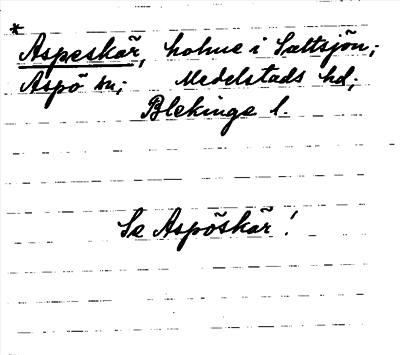 * Aspeskär, holme i Saltsjön;
Aspö sn; Medelstads hd;
Blekinge l.
Se Aspöskär!